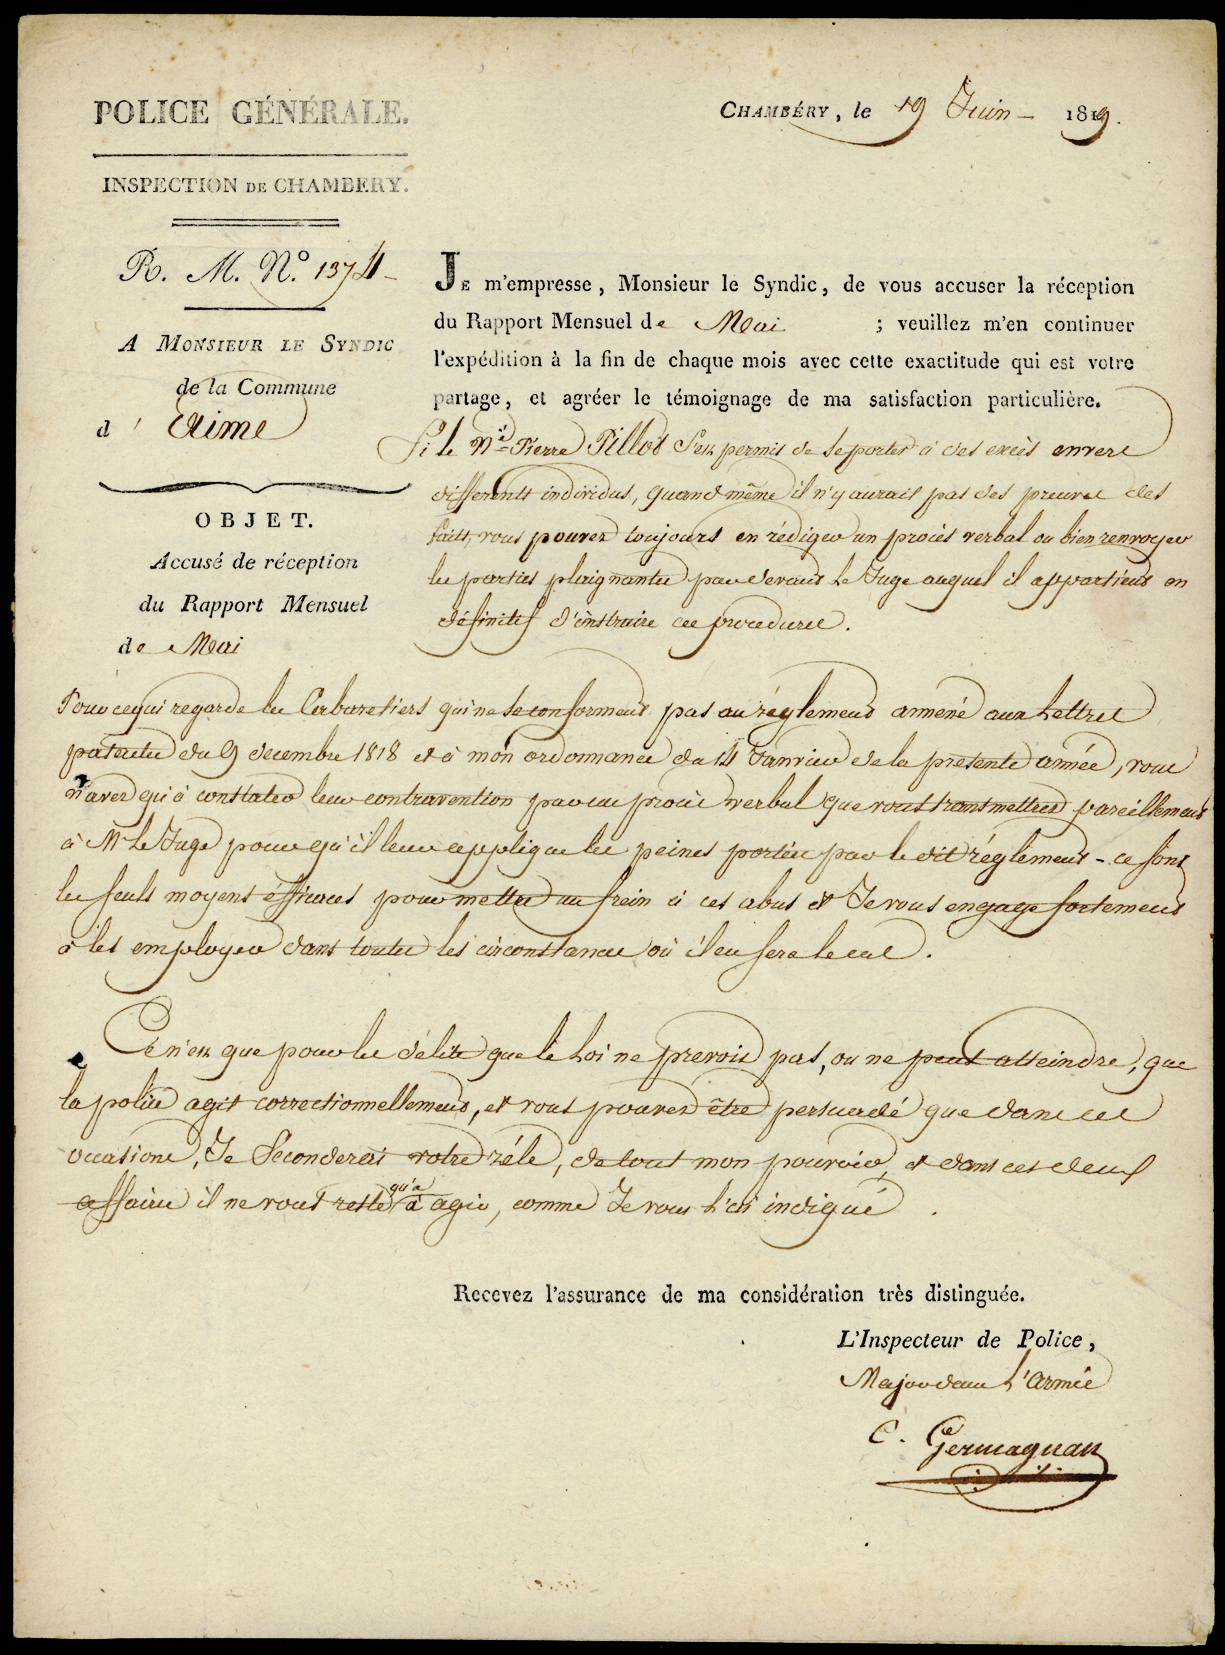 POLICE GÉNÉRALE.
INSPECTION DE CHAMBÉRY.
CHAMBÉRY, le 19 Juin – 1819.
R. M. N.º 1374 –
A MONSIEUR LE SYNDIC
de la Commune
d' Aime
OBJET.
Accusé de réception
du Rapport Mensuel
de Mai
JE m'empresse, Monsieur le Syndic, de vous accuser la réception
du Rapport Mensuel de Mai ; veuillez m'en continuer
l'expédition à la fin de chaque mois avec cette exactitude qui est votre
partage, et agréer le témoignage de ma satisfaction particulière.
Si le N.é Pierre Pillot s'est permis de se porter à des excès envers
différents individus, quand même il n'y aurait pas des preuves des
faits, vous pouvez toujours en rédiger un procès verbal ou bien renvoyer
les parties plaignantes par devant le Juge auquel il appartient en
définitif d'instruire ces procedures.
Pour ce qui regarde les Cabaretiers qui ne se conforment pas au réglement annexé aux Lettres
patentes du 9 decembre 1818 et à mon ordonnance du 14 Janvier de la présente année, vous
n'avez qu'à constater leur contravention par un procès verbal que vous transmettrez pareillement
à Mr le Juge pour qu'il leur applique les peines portées par le dit réglement - ce sont
les seuls moyens éfficaces pour mettre un frein à ces abus et Je vous engage fortement
à les employer dans toutes les circonstances où il en sera le cas.
Ce n'est que pour les délits que la Loi ne prevoit pas, ou ne peut atteindre, que
la police agit correctionnellement, et vous pouvez être persuadé que dans ces
occasions, Je Seconderai votre zéle, de tout mon pouvoir, et dans ces deux
affaires il ne vous reste qu'a à agir, comme Je vous l'ai indiqué.
Recevez l'assurance de ma considération très distinguée.
L'Inspecteur de Police,
Major dans l'Armée
C. Germagnan